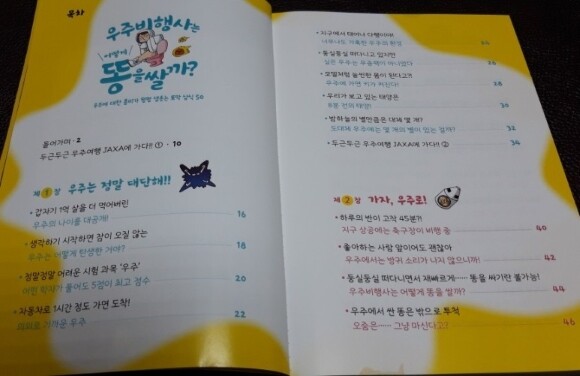 목차
우주비행사는
어떻게
똥을 쌀까?
들어가며 · 2
두근두근 우주여행 JAXA에 가다!! ① · 10
제 1 장 우주는 정말 대단해!!
• 갑자기 1억 살을 더 먹어버린
우주의 나이를 대공개!
16
• 생각하기 시작하면 잠이 오질 않는
우주는 어떻게 탄생한 거야?
18
• 정말정말 어려운 시험 과목 '우주'
어떤 학자가 풀어도 5점이 최고 점수
20
• 자동차로 1시간 정도 가면 도착!
의외로 가까운 우주
22
• 지구에서 태어나 다행이야!
너무나도 가혹한 우주의 환경
24
• 둥실둥실 떠다니고 있지만
실은 우주는 무중력이 아니었다
26
우주에 가면 키가 커진다!
28
• 우리가 보고 있는 태양은
8분 전의 태양!
30
• 밤하늘의 별만큼은 대체 몇 개?
도대체 우주에는 몇 개의 별이 있는 걸까?
32
• 두근두근 우주여행 JAXA에 가다!! ②
34
제 2 장 가자, 우주로!
• 하루의 반이 고작 45분?!
지구 상공에는 축구장이 비행 중
40
• 좋아하는 사람 앞이어도 괜찮아
우주에서는 방귀 소리가 나지 않으니까!
42
• 둥실둥실 떠다니면서 재빠르게…… 똥을 싸기란 불가능!
우주비행사는 어떻게 똥을 쌀까?
44
• 우주에서 싼 똥은 밖으로 투척
오줌은…… 그냥 마신다??
46